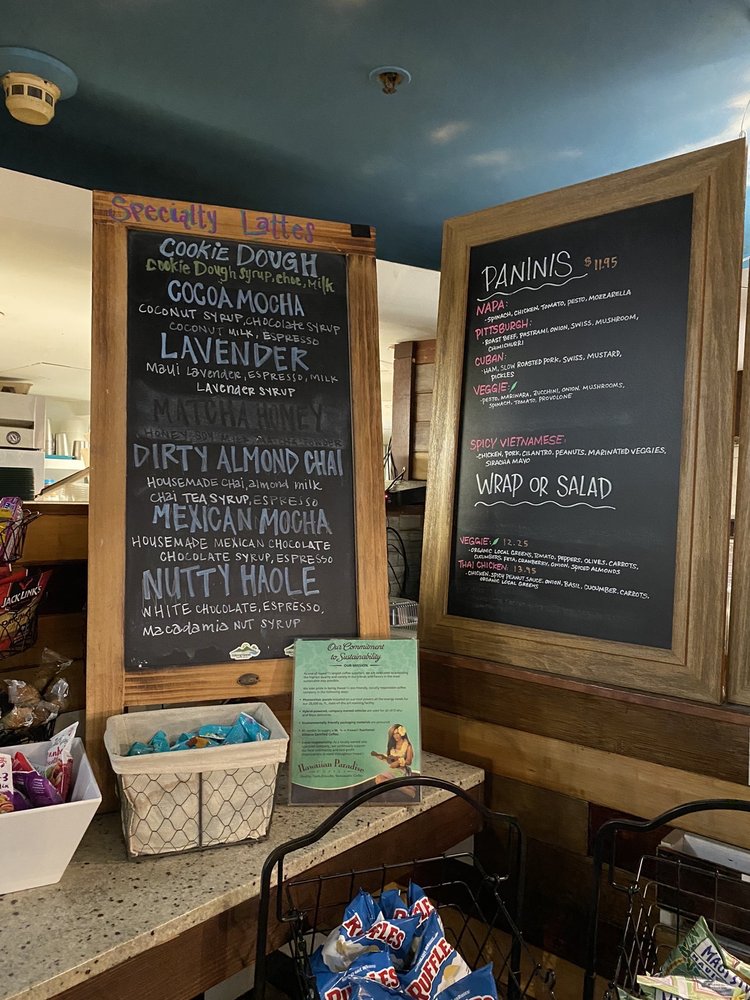 Specialty Lattes
COOKIE DOUGH
Cookie Dough syrup, choc, milk
COCOA MOCHA
COCONUT SYRUP, CHOCOLATE SYRUP
COCONUT MILK, ESPRESSO
LAVENDER
Maui Lavender, ESPRESSO, MILK
LAVENDER SYRUP
MATCHA HONEY
DIRTY ALMOND CHAI
HOUSEMADE CHAI, almond milk,
CHAI TEA SYRUP, ESPRESSO
MEXICAN MOCHA
HOUSEMADE MEXICAN CHOCOLATE
CHOCOLATE SYRUP, ESPRESSO
NUTTY HAOLE
WHITE CHOCOLATE, ESPRESSO,
Macadamia NUT SYRUP
PANINIS $11.95
NAPA:
-SPINACH, CHICKEN, TOMATO, PESTO, MOZZARELLA
PITTSBURGH:
-ROAST BEEF, PASTRAMI, ONION, SWISS, MUSHROOM,
CHIMICHURRI
CUBAN:
-HAM, SLOW ROASTED PORK, SWISS, MUSTARD,
PICKLES
VEGGIE:
-PESTO, MARINARA, ZUCCHINI, ONION, MUSHROOMS,
SPINACH, TOMATO, PROVOLONE
SPICY VIETNAMESE:
-CHICKEN, PORK, CILANTRO, PEANUTS, MARINATED VEGGIES,
SIRACHA MAYO
WRAP OR SALAD
VEGGIE: 12.25
-ORGANIC LOCAL GREENS, TOMATO, PEPPERS, OLIVES, CARROTS,
CUCUMBERS, FETA, CRANBERRY, ONION, SPICED ALMONDS
THAI CHICKEN: 13.95
-CHICKEN, SPICY PEANUT SAUCE, ONION, BASIL, CUCUMBER, CARROTS,
ORGANIC LOCAL GREENS
Our Commitment
to Sustainability
OUR MISSION
Hawaiian Paradise
JACK LINK'S
RUFFLES
RUFFLES